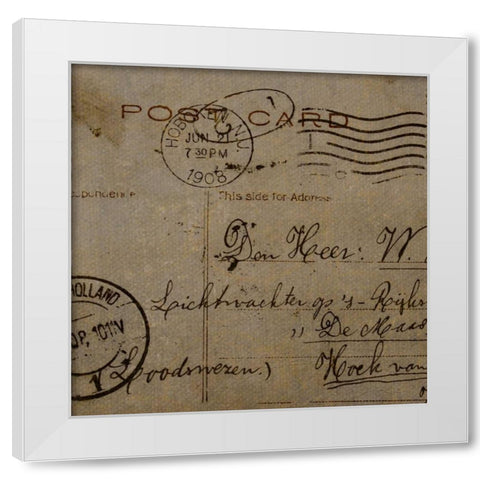 POST CARD
HOBOKEN, N.J.
JUN 21
7 30 PM
1908
This side for Address
Den Heer: W.
Lichtwachter op 's-Rijks
" De Maas
Loodswezen.)
Hoek van
HOLLAND